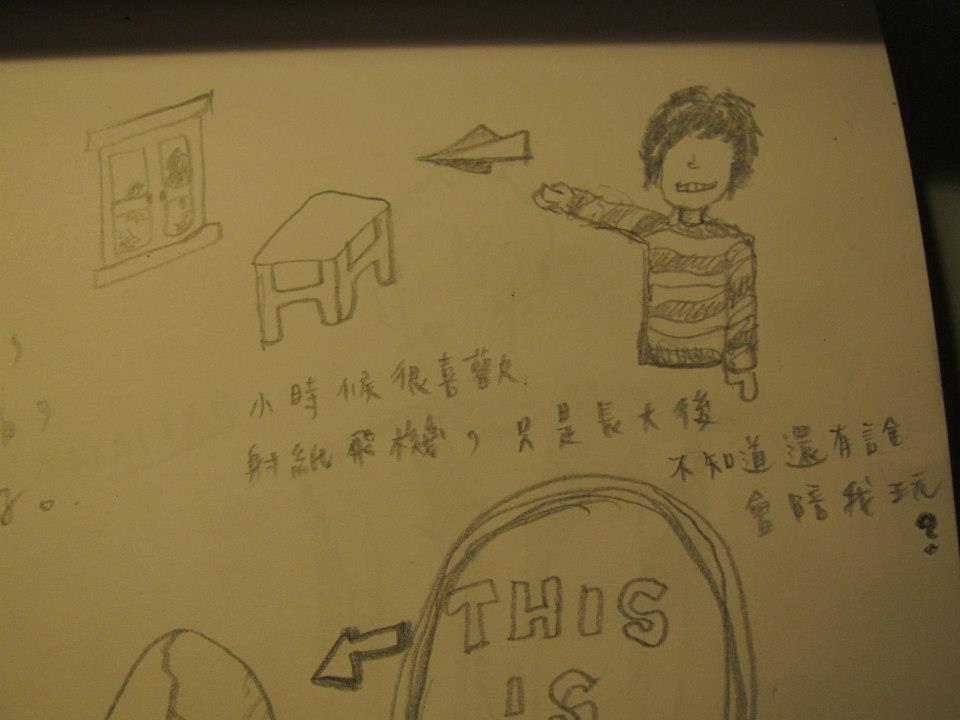 小時候很喜歡
射紙飛機，只是長大後
不知道還有誰
會陪我玩?
THIS
IS